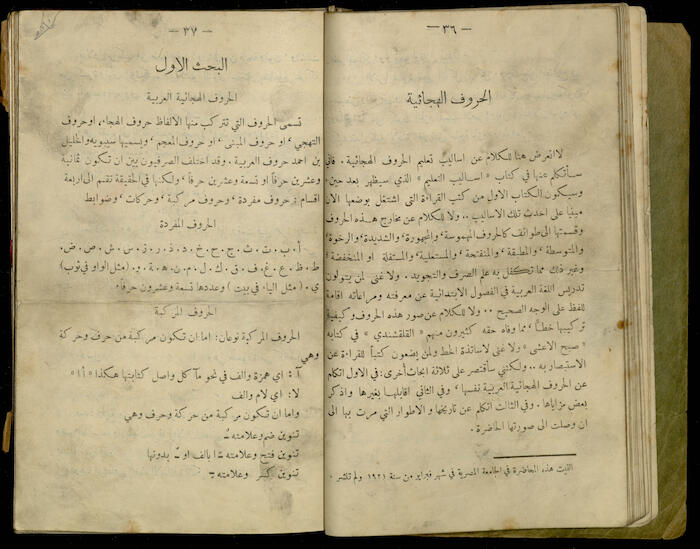 — ٣٦ —
الحروف الهجائية
لا اتعرض هنا للكلام عن اساليب تعليم الحروف الهجائية . فاني
سأتكلم عنها في كتاب « اساليب التعليم » الذي سيظهر بعد حين ،
وسيكون الكتاب الاول من كتب القراءة التي اشتغل بوضعها الآن
مبنياً على احدث تلك الاساليب .. ولا للكلام عن مخارج هذه الحروف
وقسمتها الى طوائف كالحروف المهموسة، والمجهورة، والشديدة، والرخوة،
والمتوسطة، والمطبقة، والمنفتحة، والمستعلية، والمستفلة او المنخفضة،
وغير ذلك مما تتكفل به علم الصرف والتجويد . ولا غنى لمن يتولون
تدريس اللغة العربية في الفصول الابتدائية عن معرفته ومراعاته اقامة
للفظ على الوجه الصحيح .. ولا للكلام عن صور هذه الحروف وكيفية
تركيبها خطاً، مما وفاه حقه كثيرون منهم « القلقشندي » في كتابه
« صبح الاعشى » ولا غنى لاساتذة الخط ولمن يضعون كتباً للقراءة عن
الاستبصار به .. ولكنني سأقتصر على ثلاثة ابحاث اخرى: في الاول اتكلم
عن الحروف الهجائية العربية نفسها، وفي الثاني اقابلها بغيرها واذكر
بعض مزاياها . وفي الثالث اتكلم عن تاريخها والاطوار التي مرت بها الى
ان وصلت الى صورتها الحاضرة .
القيت هذه المحاضرة في الجامعة المصرية في شهر فبراير من سنة ١٩٢١ ولم تنشر .
— ٣٧ —
البحث الاول
الحروف الهجائية العربية
تسمى الحروف التي تتركب منها الالفاظ حروف الهجاء، او حروف
التهجي، او حروف المبنى، او حروف المعجم، ويسميها سيبويه والخليل
بن احمد حروف العربية . وقد اختلف الصرفيون بين ان تكون ثمانية
وعشرين حرفاً او تسعة وعشرين حرفاً، ولكنها في الحقيقة تقسم الى اربعة
اقسام : حروف مفردة، وحروف مركبة، وحركات، وضوابط
الحروف المفردة
أ . ب . ت . ث . ج . ح . خ . د . ذ . ر . ز . س . ش . ص . ض .
ط . ظ . ع . غ . ف . ق . ك . ل . م . ن . ه . ة . و . (مثل الواو في ثوب)
ي . (مثل الياء في بيت) وعددها تسعة وعشرون حرفاً.
الحروف المركبة
الحروف المركبة نوعان: اما ان تكون مركبة من حرف وحركة
وهي
آ : اي همزة والف في نحو مآكل واصل كتابتها هكذا « أا »
لا: اي لام والف
واما ان تكون مركبة من حركة وحرف وهي
تنوين ضم وعلامته ـٌ
تنوين فتح وعلامته ـًا بالف او ـً بدونها
تنوين كسر وعلامته ـٍ